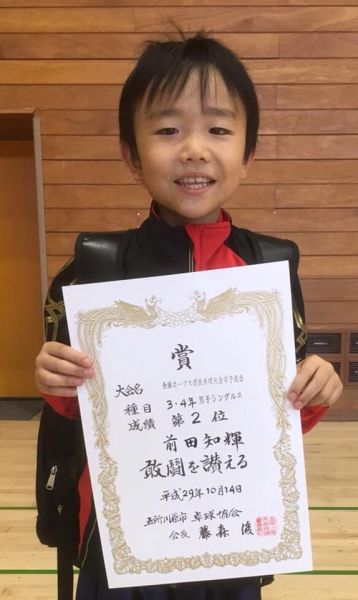 賞
大会名 全国ホープス選抜卓球大会市予選会
種目 3・4年男子シングルス
成績 第2位
前田知輝
敢闘を讃える
平成29年10月14日
五所川原市卓球協会
会長 藤森 俊